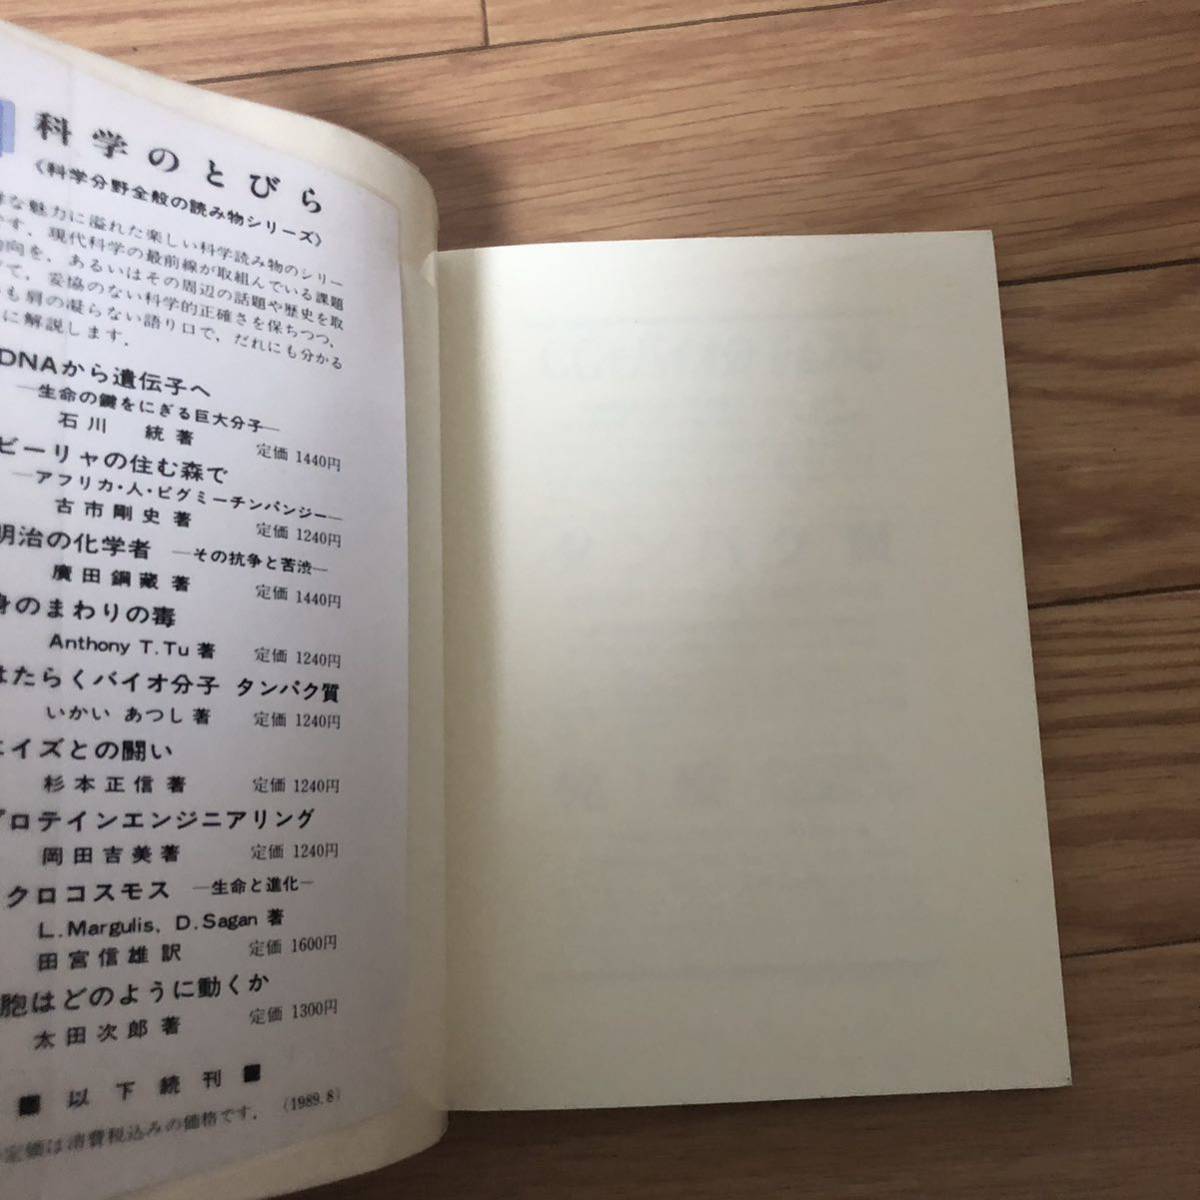 科学のとびら
《科学分野全般の読み物シリーズ》
な魅力に溢れた楽しい科学読み物のシリー
す．現代科学の最前線が取組んでいる課題
向を，あるいはその周辺の話題や歴史を取
て，妥協のない科学的正確さを保ちつつ，
も肩の凝らない語り口で，だれにも分かる
に解説します．
DNAから遺伝子へ
―生命の鍵をにぎる巨大分子―
石川 統著 定価 1440円
ビーリャの住む森で
―アフリカ・人・ピグミーチンパンジー―
古市剛史著 定価 1240円
明治の化学者 ―その抗争と苦渋―
廣田鋼蔵著 定価 1440円
身のまわりの毒
Anthony T. Tu 著 定価 1240円
はたらくバイオ分子 タンパク質
いかい あつし著 定価 1240円
エイズとの闘い
杉本正信著 定価 1240円
プロテインエンジニアリング
岡田吉美著 定価 1240円
クロコスモス ―生命と進化―
L. Margulis, D. Sagan 著
田宮信雄訳 定価 1600円
胞はどのように動くか
太田次郎著 定価 1300円
■ 以下続刊 ■
定価は消費税込みの価格です． (1989.8)